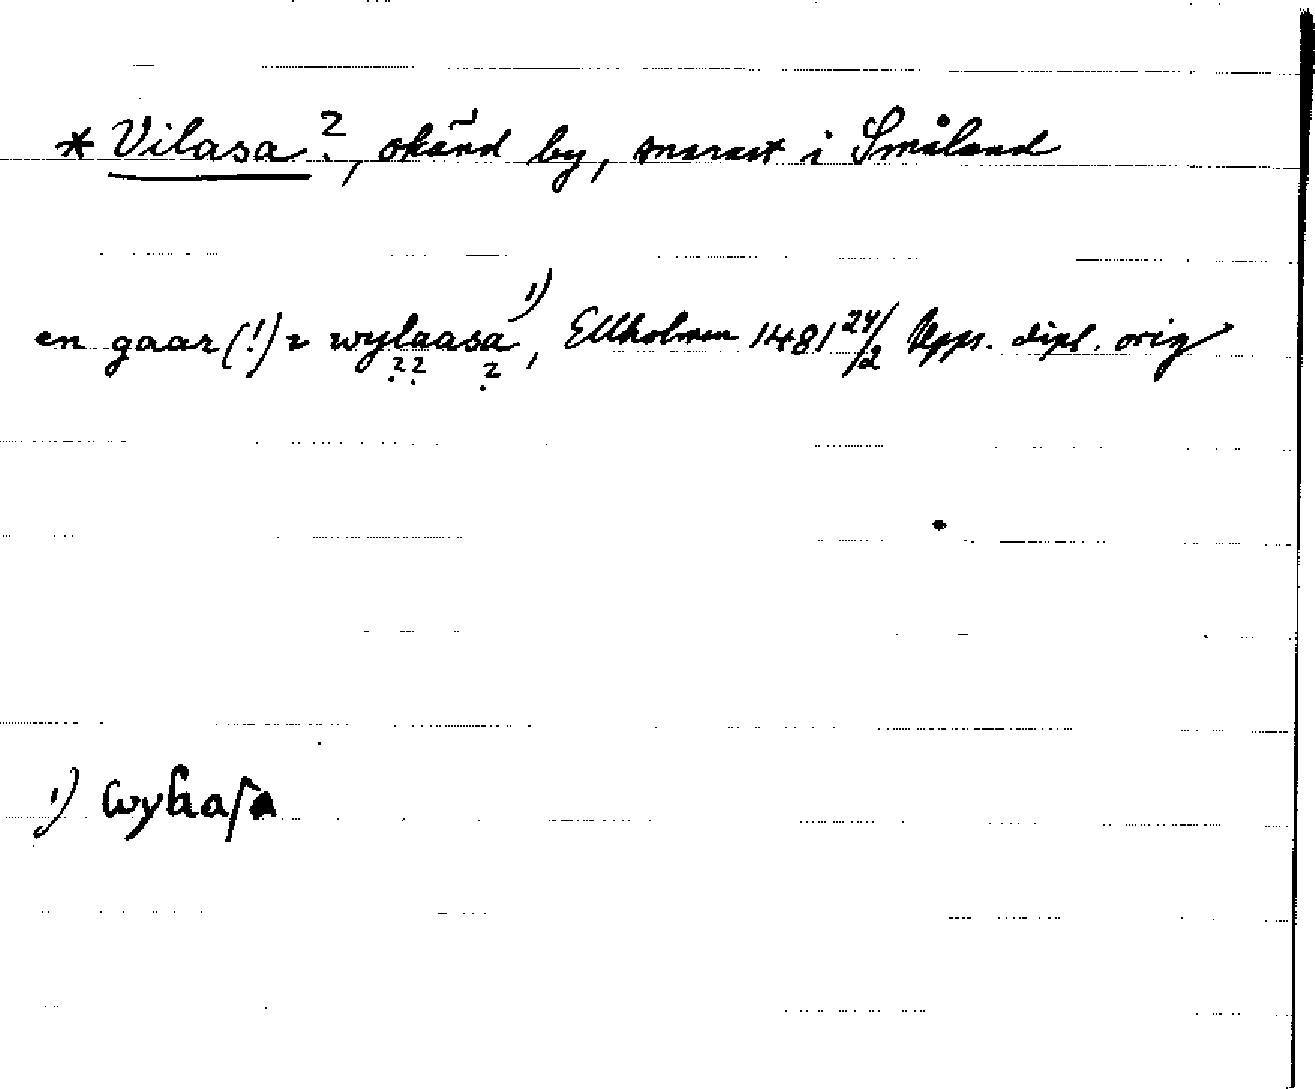 * Vilasa ?, okänd by, snarast i Småland
en gaar (!) i wylaasa 1), Ellholmen 1481 24/2 Upps. dipl. orig
? ? ?
1) wylaasa